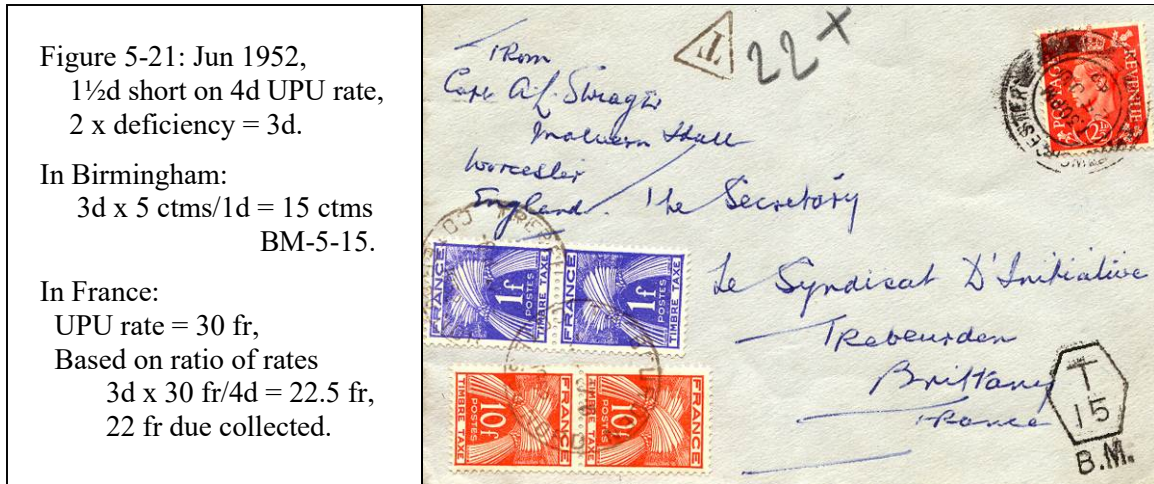 Figure 5-21: Jun 1952,
1½d short on 4d UPU rate,
2 x deficiency = 3d.
In Birmingham:
3d x 5 ctms/1d = 15 ctms
BM-5-15.
In France:
UPU rate = 30 fr,
Based on ratio of rates
3d x 30 fr/4d = 22.5 fr,
22 fr due collected.
From
Malvern Hall
Worcester
England.
T
22 x
POSTAGE REVENUE
2½D
The Secretary
Le Syndicat D'Initiative
Trebeurden
Brittany
France
FRANCE
1f
POSTES
TIMBRE TAXE
FRANCE
1f
POSTES
TIMBRE TAXE
FRANCE
10f
POSTES
TIMBRE TAXE
FRANCE
10f
POSTES
TIMBRE TAXE
T
15
B.M.